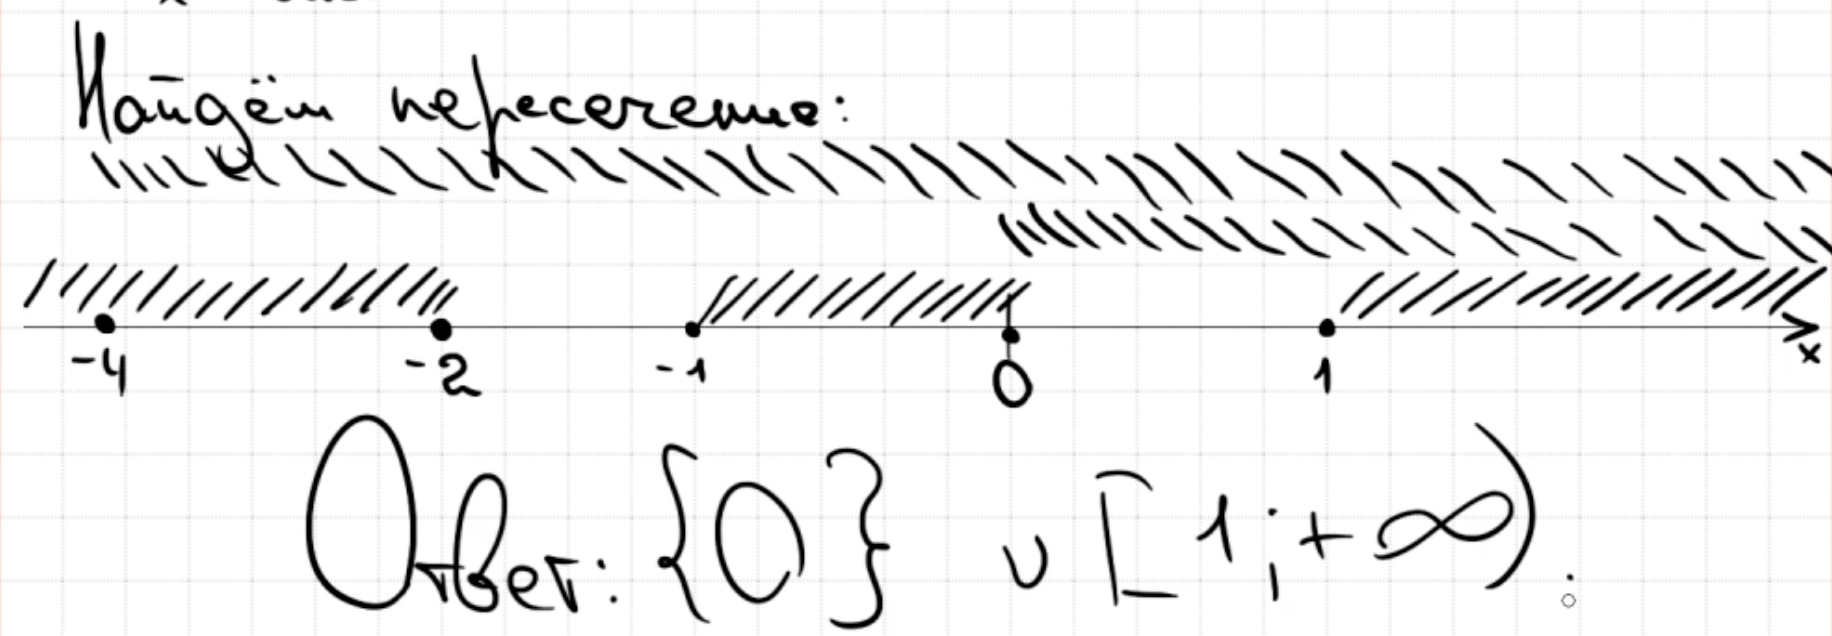 Найдём пересечение:
-4 -2 -1 0 1 x
Ответ: {0} ∪ [1; +∞).